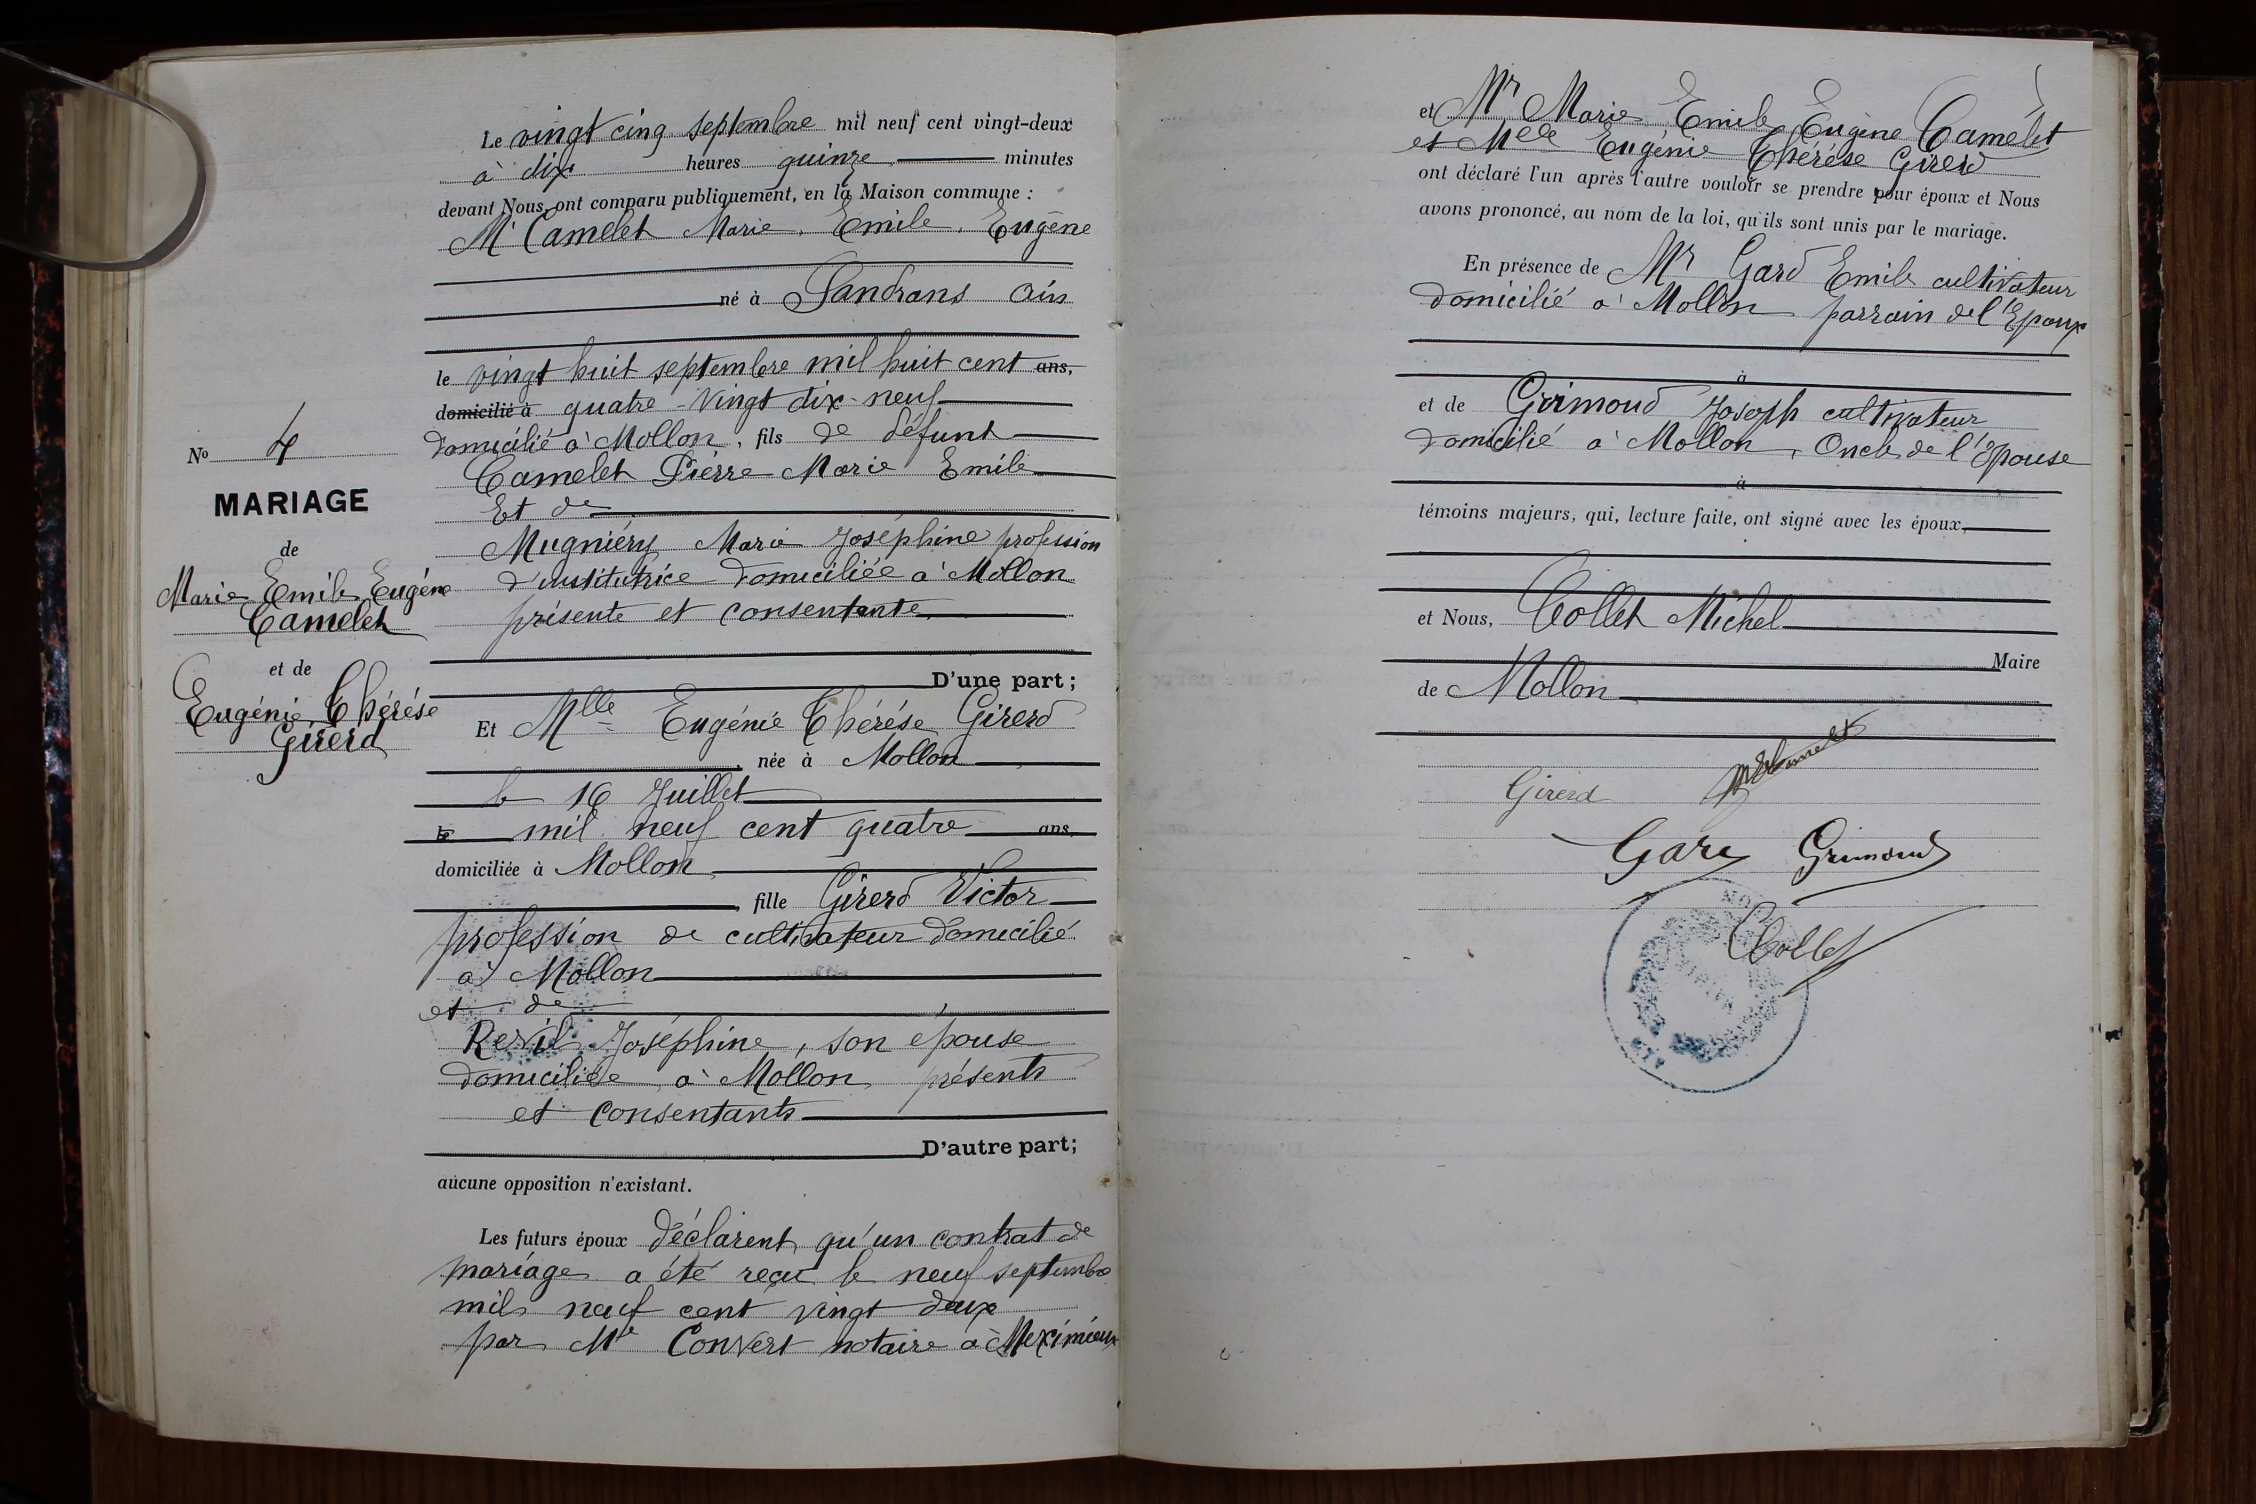 Le vingt cinq septembre mil neuf cent vingt-deux
à dix heures quinze minutes
devant Nous, ont comparu publiquement, en la Maison commune :
Mr Camelet Marie, Emile, Eugène
né à Sandrans Ain
le vingt huit septembre mil huit cent ans,
domicilié à quatre-vingt dix-neuf
domicilié à Mollon, fils de défunt
Camelet Pierre Marie Emile
Et de
Mugniéry Marie Joséphine profession
d'institutrice domiciliée à Mollon
présente et consentante
D'une part ;
Et Mlle Eugénie Thérèse Girerd
née à Mollon
le 16 Juillet
le mil neuf cent quatre ans,
domiciliée à Mollon
fille Girerd Victor
profession de cultivateur domicilié
à Mollon
et de
Revil Joséphine, son épouse
domiciliée à Mollon présents
et consentants
D'autre part ;
aucune opposition n'existant.
Les futurs époux déclarent qu'un contrat de
mariage a été reçu le neuf septembre
mil neuf cent vingt deux
par Me Convert notaire à Meximieux
No 4
MARIAGE
de
Marie Emile Eugène
Camelet
et de
Eugénie Thérèse
Girerd
et Mr Marie Emile Eugène Camelet
et Melle Eugénie Thérèse Girerd
ont déclaré l'un après l'autre vouloir se prendre pour époux et Nous
avons prononcé, au nom de la loi, qu'ils sont unis par le mariage.
En présence de Mr Gard Emile cultivateur
domicilié à Mollon parrain de l'Epoux
à
et de Grimoud Joseph cultivateur
domicilié à Mollon, Oncle de l'épouse
à
témoins majeurs, qui, lecture faite, ont signé avec les époux,
et Nous, Collet Michel
Maire
de Mollon
Girerd Camelet
Gard Grimoud
Collet